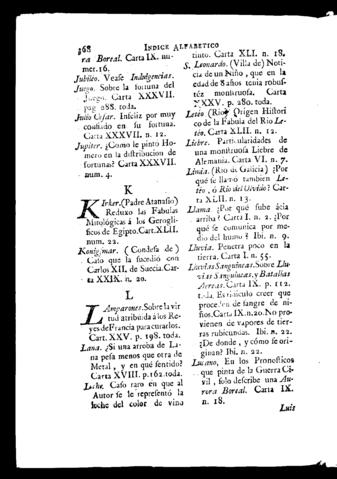 368 INDICE ALFABETICO
ra Boreal. Carta IX. nu-
mer. 16.
Jubileo. Vease Indulgencias.
Juego. Sobre la fortuna del
Juego. Carta XXXVII.
pag 288. toda.
Julio Cesar. Infeliz por muy
confiado en su fortuna.
Carta XXXVII. n. 12.
Jupiter. ¿Como le pinto Ho-
mero en la distribucion de
fortunas? Carta XXXVII.
num. 4.
K
Kirker.(Padre Atanasio)
Reduxo las Fabulas
Mitológicas à los Gerogli-
ficos de Egipto.Cart.XLII.
num. 22.
Konigmar. (Condesa de)
Caso que la sucedió con
Carlos XII, de Suecia.Car-
ta XXIX. n. 20.
L
Lamparones.Sobre la vir
tud atribuida à los Re-
yes de Francia para curarlos.
Cart. XXV. p. 198. toda.
Lana. ¿Si una arroba de La-
na pesa menos que otra de
Metal, y en qué sentido?
Carta XVIII. p.162.toda.
Leche. Caso raro en que al
Autor se le representó la
leche del color de vino
tinto. Carta XLI. n. 18.
S. Leonardo. (Villa de) Noti-
cia de un Niño, que en la
edad de 8 años tenia robus-
téz monstruosa. Carta
XXXV. p. 280. toda.
(Rio) Origen Histori
co de la Fabula del Rio Le-
téo. Carta XLII. n. 12.
Liebre. Particularidades de
una monstruosa Liebre de
Alemania. Carta VI. n. 7.
Limia. (Rio de Galicia) ¿Por
qué se llamó tambien Le-
téo, ó Rio del Olvido? Car-
ta XLII. n. 13.
Llama. ¿Por qué sube ácia
arriba? Carta I. n. 2. ¿Por
qué se comunica por me-
dio del humo? Ibi. n. 9.
Lluvia. Penetra poco en la
tierra. Carta I. n. 55.
Lluvias Sanguineas. Sobre Llu-
vias Sanguineas, y Batallas
Aereas. Carta IX. p. 112.
toda. Es ridiculo creer que
proceden de sangre de ni-
ños.Carta IX.n.20.No pro-
vienen de vapores de tier-
ras rubicundas. Ibi. n. 22.
¿De donde, y cómo se ori-
ginan? Ibi. n. 22.
Lucano, En los Pronosticos
que pinta de la Guerra Ci-
vil, solo describe una Au-
rora Boreal. Carta IX.
n. 18.
Luis